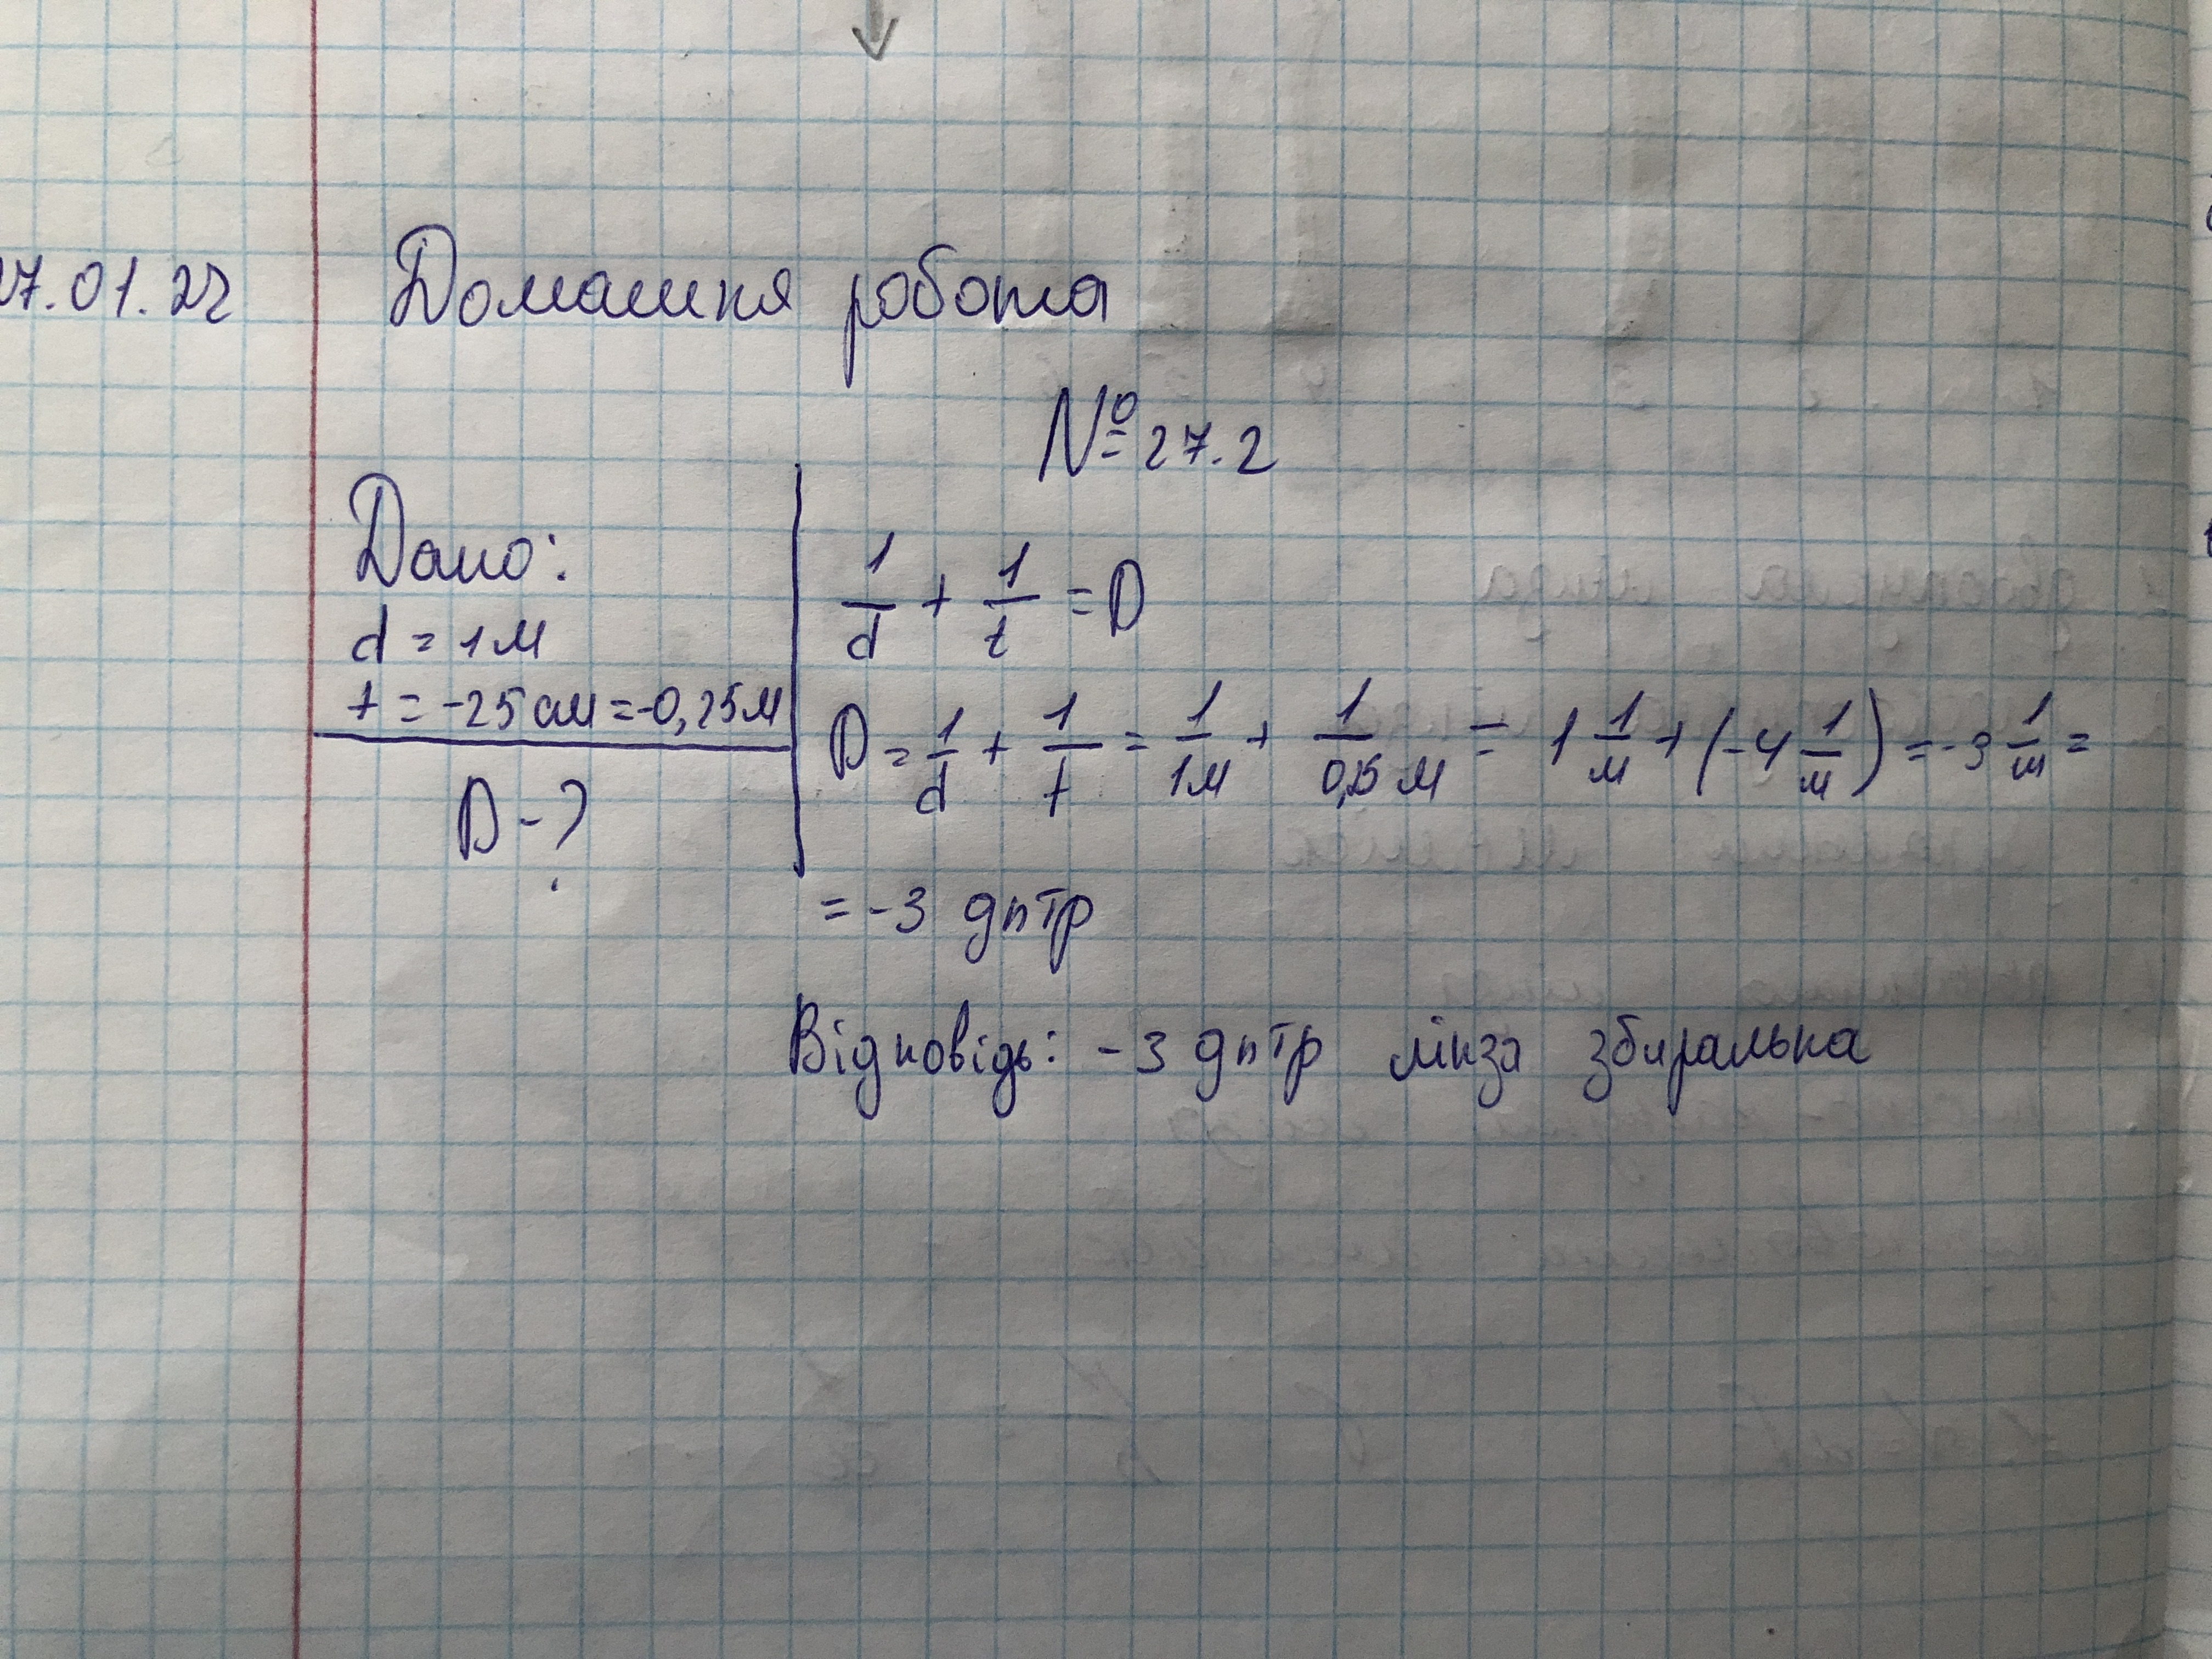 27.01.22 Домашня робота
№ 27.2
Дано:
d = 1м
f = -25 см = -0,25м
D - ?
1/d + 1/f = D
D = 1/d + 1/f = 1/1м + 1/0,25 м = 1 1/м + (-4 1/м) = -3 1/м =
= -3 дптр
Відповідь: -3 дптр лінза збиральна